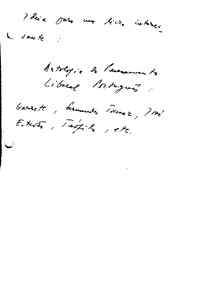 Ideia para um livro interes-
sante :
Antologia do Pensamento
Liberal Português :
Garrett, Fernandes Tomaz, José
Estêvão, Teófilo, etc.